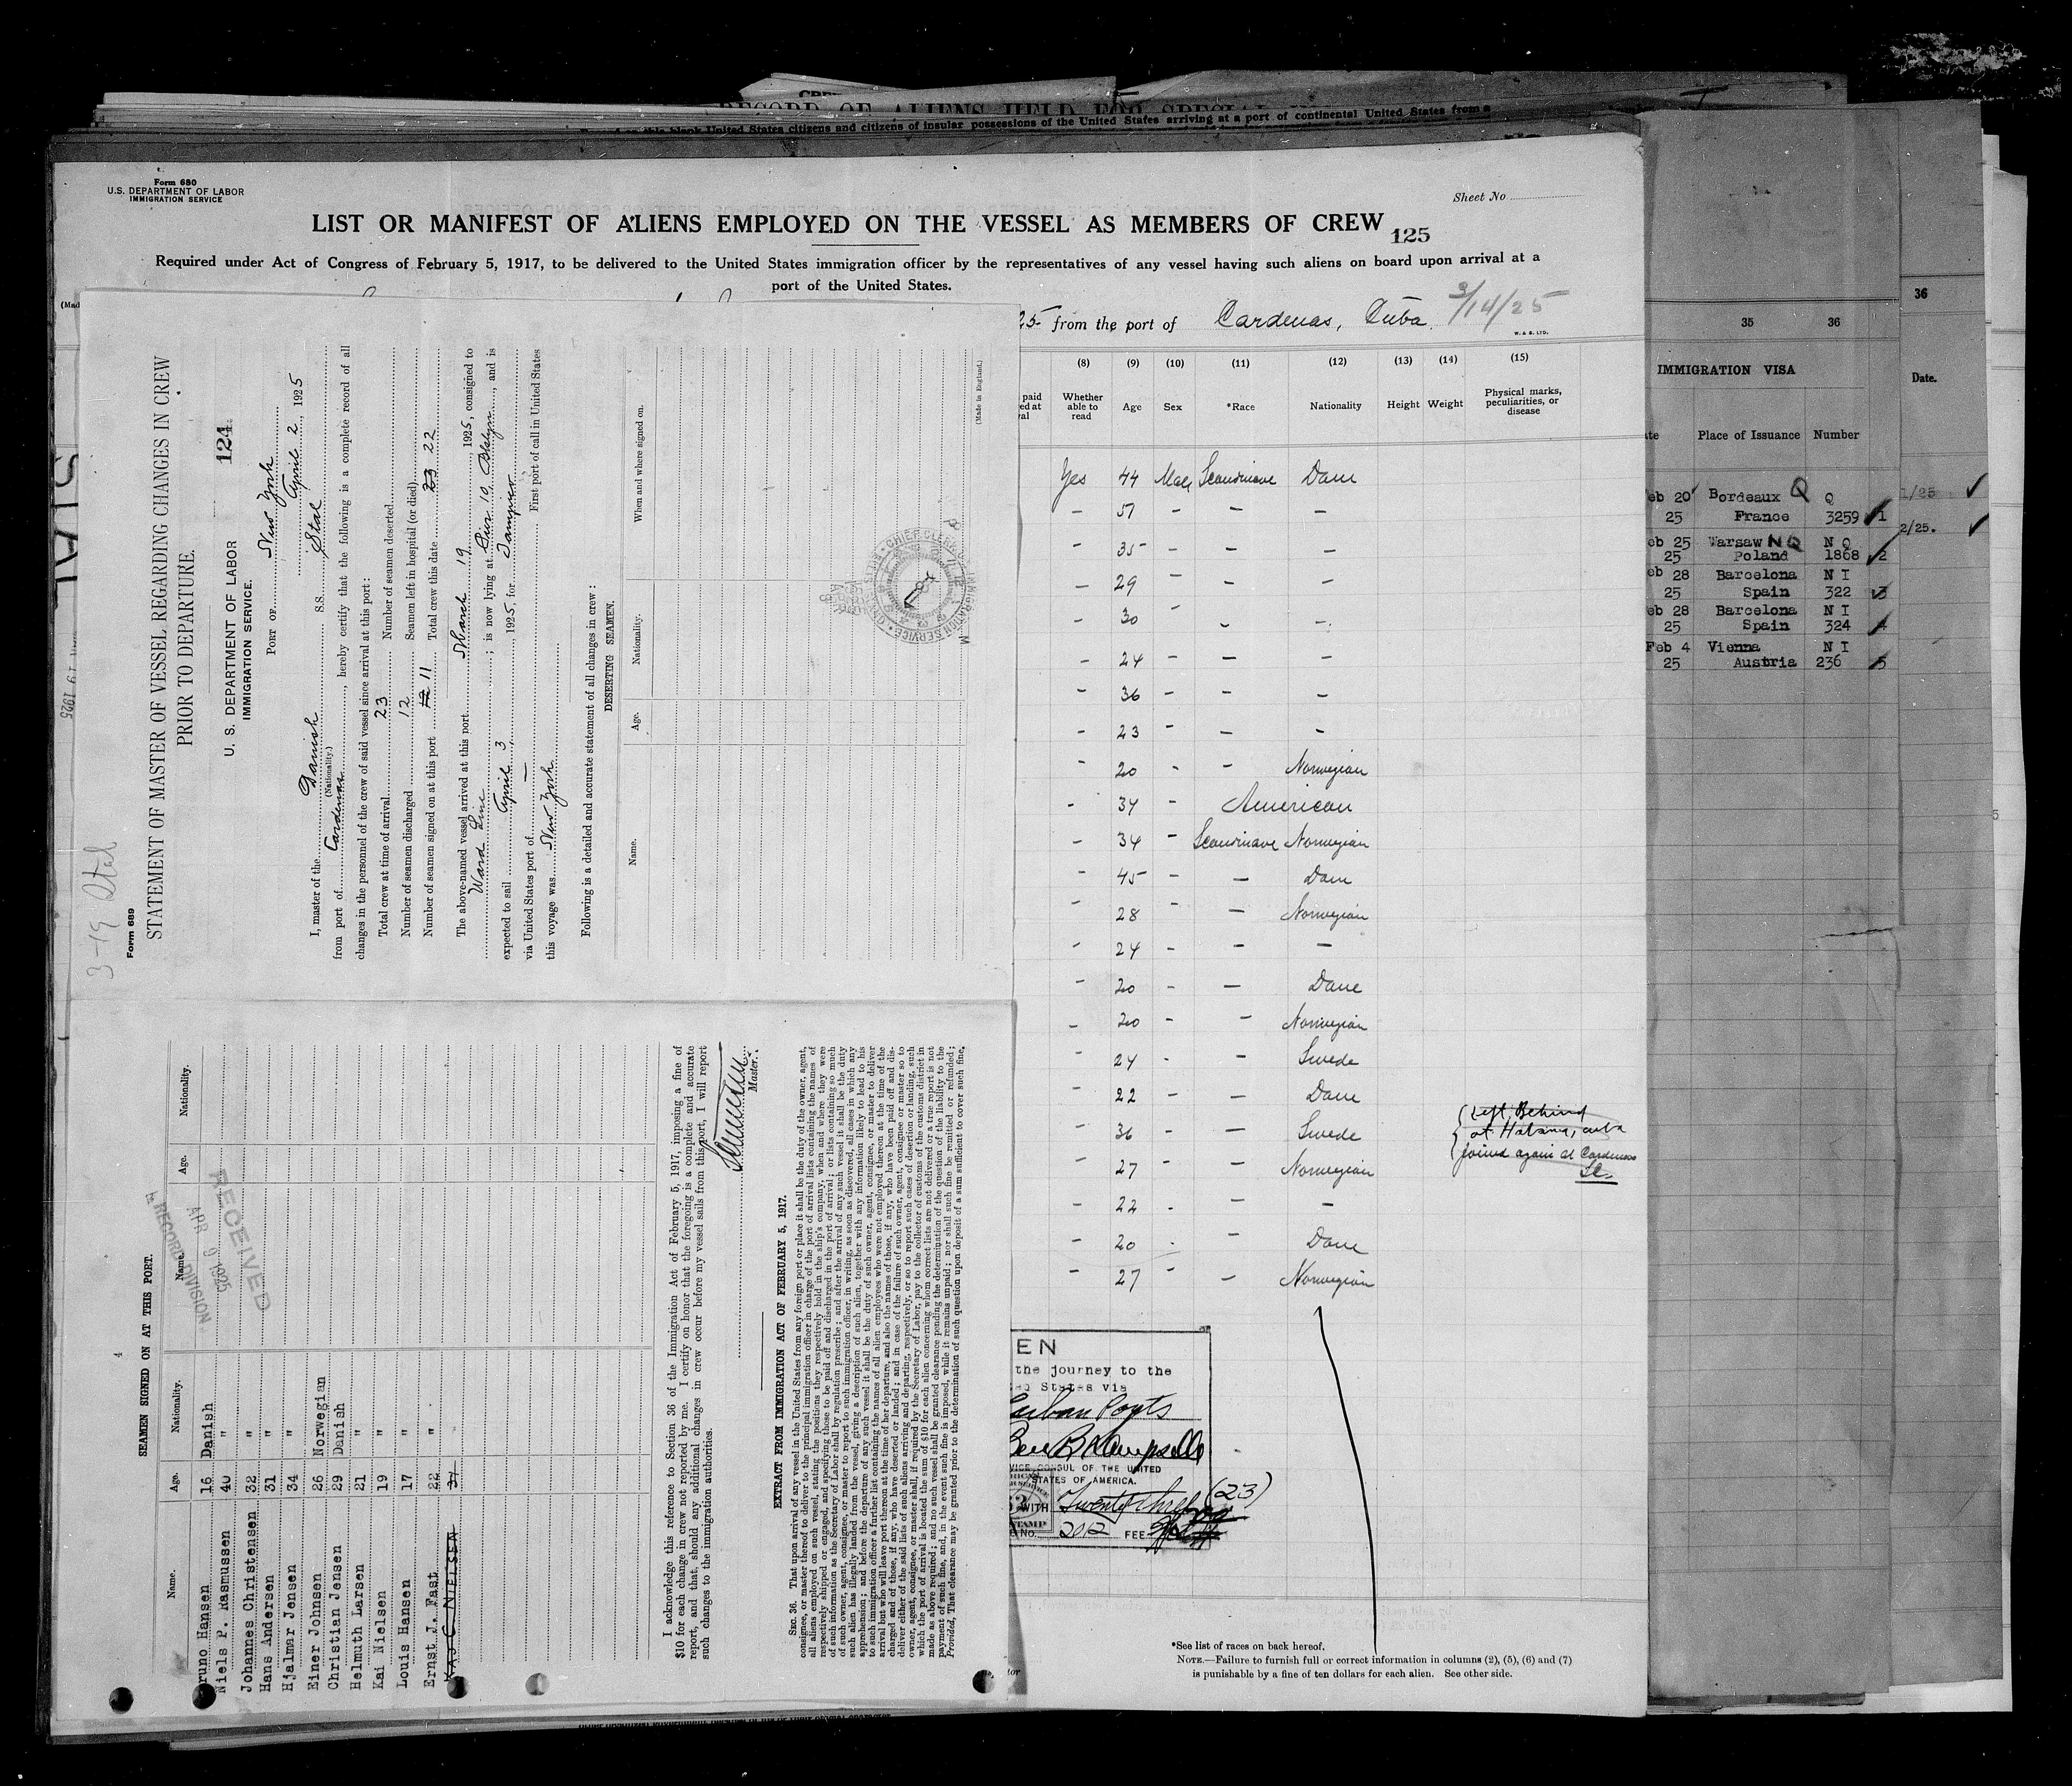 RECORD OF ALIENS HELD FOR SPECIAL
United States citizens and citizens of insular possessions of the United States arriving at a port of continental United States from a
Form 680
U.S. DEPARTMENT OF LABOR
IMMIGRATION SERVICE
Sheet No
LIST OR MANIFEST OF ALIENS EMPLOYED ON THE VESSEL AS MEMBERS OF CREW
125
Required under Act of Congress of February 5, 1917, to be delivered to the United States immigration officer by the representatives of any vessel having such aliens on board upon arrival at a
port of the United States.
25 from the port of Cardenas, Cuba. 3/14/25
W. & S. LTD.
(8) (9) (10) (11) (12) (13) (14) (15)
Whether able to read Age Sex *Race Nationality Height Weight Physical marks, peculiarities, or disease
Yes 44 Male Scandinave Dane
- 57 - - -
- 35 - - -
- 29 - - -
- 30 - - -
- 24 - - -
- 36 - - -
- 23 - - -
- 20 - - Norwegian
- 34 - American
- 34 - Scandinave Norwegian
- 45 - - Dane
- 28 - - Norwegian
- 24 - - -
- 20 - - Dane
- 20 - - Norwegian
- 24 - - Swede
- 22 - - Dane
- 36 - - Swede
- 27 - - Norwegian
- 22 - - -
- 20 - - Dane
- 27 - - Norwegian
Left Behind
at Habana, Cuba
joined again at Cardenas
EN
the journey to the
States via
VICE CONSUL OF THE UNITED
STATES OF AMERICA.
WITH Twenty three (23)
No. 2012 FEE
*See list of races on back hereof.
NOTE.—Failure to furnish full or correct information in columns (2), (5), (6) and (7)
is punishable by a fine of ten dollars for each alien. See other side.
3-19 Stal
Form 689
STATEMENT OF MASTER OF VESSEL REGARDING CHANGES IN CREW
PRIOR TO DEPARTURE.
124
U. S. DEPARTMENT OF LABOR
IMMIGRATION SERVICE.
PORT OF New York
April 2, 1925
I, master of the Danish S.S. Stal
(Nationality.)
from port of Cardenas, hereby certify that the following is a complete record of all
changes in the personnel of the crew of said vessel since arrival at this port:
Total crew at time of arrival 23 Number of seamen deserted
Number of seamen discharged 12 Seamen left in hospital (or died)
Number of seamen signed on at this port 12 11 Total crew this date 23 22
The above-named vessel arrived at this port March 19, 1925, consigned to
Ward Line; is now lying at Pier 19, Bklyn, and is
expected to sail April 3, 1925, for Tampico
via United States port of — First port of call in United States
this voyage was New York
Following is a detailed and accurate statement of all changes in crew:
DESERTING SEAMEN.
Name. Age. Nationality. When and where signed on.
CHIEF CLERK U.S. IMMIGRATION SERVICE
(Made in England.)
4
SEAMEN SIGNED ON AT THIS PORT.
Name. Age. Nationality. Name. Age. Nationality.
runo Hansen 16 Danish
Niels P. Rasmussen 40 "
Johannes Christensen 32 "
Hans Andersen 31 "
Hjalmar Jensen 34 "
Einer Johnsen 26 Norwegian
Christian Jensen 29 Danish
Helmuth Larsen 21 "
Kai Nielsen 19 "
Louis Hansen 17 "
Ernst J. Fast 22 "
KAJ C NIELSEN 37
RECEIVED
APR 9 1925
RECORD DIVISION
I acknowledge this reference to Section 36 of the Immigration Act of February 5, 1917, imposing a fine of
$10 for each change in crew not reported by me. I certify on honor that the foregoing is a complete and accurate
report, and that, should any additional changes in crew occur before my vessel sails from this port, I will report
such changes to the immigration authorities.
Master.
EXTRACT FROM IMMIGRATION ACT OF FEBRUARY 5, 1917.
SEC. 36. That upon arrival of any vessel in the United States from any foreign port or place it shall be the duty of the owner, agent,
consignee, or master thereof to deliver to the principal immigration officer in charge of the port of arrival lists containing the names of
all aliens employed on such vessel, stating the positions they respectively hold in the ship's company, when and where they were
respectively shipped or engaged, and specifying those to be paid off and discharged in the port of arrival; or lists containing so much
of such information as the Secretary of Labor shall by regulation prescribe; and after the arrival of any such vessel it shall be the duty
of such owner, agent, consignee, or master to report to such immigration officer, in writing, as soon as discovered, all cases in which any
such alien has illegally landed from the vessel, giving a description of such alien, together with any information likely to lead to his
apprehension; and before the departure of any such vessel it shall be the duty of such owner, agent, consignee, or master to deliver
to such immigration officer a further list containing the names of all alien employees who were not employed thereon at the time of the
arrival but who will leave port thereon at the time of her departure, and also the names of those, if any, who have been paid off and dis-
charged and of those, if any, who have deserted or landed; and in case of the failure of such owner, agent, consignee or master so to
deliver either of the said lists of such aliens arriving and departing, respectively, or so to report such cases of desertion or landing, such
owner, agent, consignee, or master shall, if required by the Secretary of Labor, pay to the collector of customs of the customs district in
which the port of arrival is located the sum of $10 for each alien concerning whom correct lists are not delivered or a true report is not
made as above required; and no such vessel shall be granted clearance pending the determination of the question of the liability to the
payment of such fine, and, in the event such fine is imposed, while it remains unpaid; nor shall such fine be remitted or refunded;
Provided, That clearance may be granted prior to the determination of such question upon deposit of a sum sufficient to cover such fine.
35 36 36
IMMIGRATION VISA
Date.
Place of Issuance Number
eb 20 Bordeaux Q Q 1/25
25 France 3259 1
2/25.
eb 25 Warsaw NQ N Q
25 Poland 1868 2
eb 28 Barcelona N I
25 Spain 322 3
eb 28 Barcelona N I
25 Spain 324 4
Feb 4 Vienna N I
25 Austria 236 5